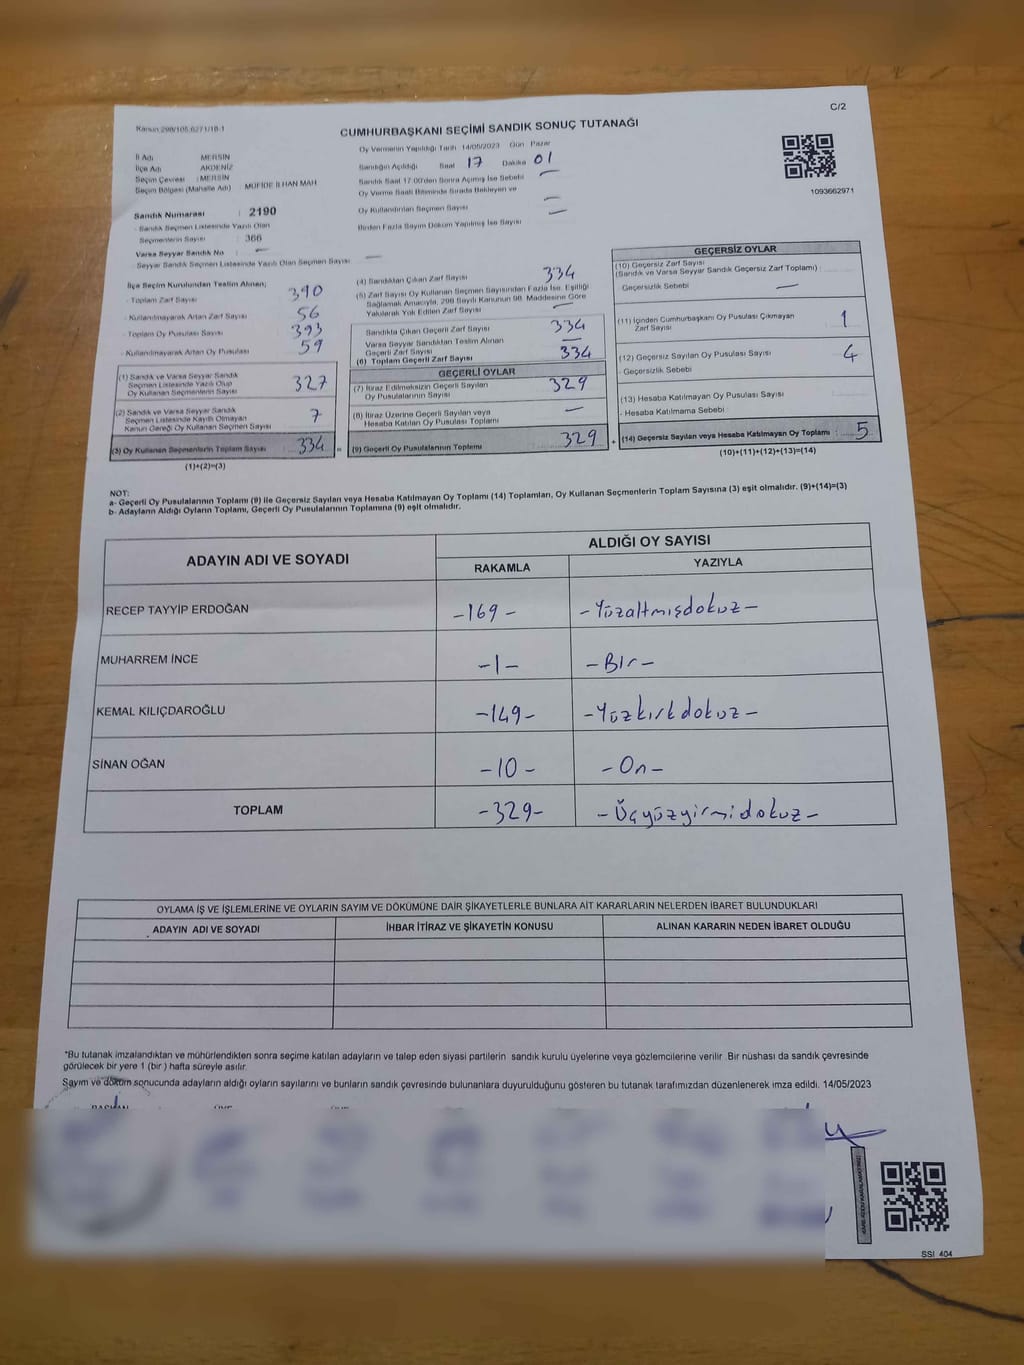 C/2
Kanun:298/105,6271/18-1
CUMHURBAŞKANI SEÇİMİ SANDIK SONUÇ TUTANAĞI
İl Adı : MERSİN
İlçe Adı : AKDENİZ
Seçim Çevresi : MERSİN
Seçim Bölgesi (Mahalle Adı) : MÜFİDE İLHAN MAH
Sandık Numarası : 2190
- Sandık Seçmen Listesinde Yazılı Olan
Seçmenlerin Sayısı : 366
Varsa Seyyar Sandık No : —
- Seyyar Sandık Seçmen Listesinde Yazılı Olan Seçmen Sayısı : —
Oy Vermenin Yapıldığı Tarih 14/05/2023 Gün Pazar
Sandığın Açıldığı Saat 17 Dakika 01
Sandık Saat 17:00'den Sonra Açılmış İse Sebebi —
Oy Verme Saati Bitiminde Sırada Bekleyen ve
Oy Kullandırılan Seçmen Sayısı —
Birden Fazla Sayım Döküm Yapılmış İse Sayısı —
1093662971
İlçe Seçim Kurulundan Teslim Alınan;
- Toplam Zarf Sayısı 390
- Kullanılmayarak Artan Zarf Sayısı 56
- Toplam Oy Pusulası Sayısı 393
- Kullanılmayarak Artan Oy Pusulası 59
(1) Sandık ve Varsa Seyyar Sandık
Seçmen Listesinde Yazılı Olup
Oy Kullanan Seçmenlerin Sayısı 327
(2) Sandık ve Varsa Seyyar Sandık
Seçmen Listesinde Kayıtlı Olmayan
Kanun Gereği Oy Kullanan Seçmen Sayısı 7
(3) Oy Kullanan Seçmenlerin Toplam Sayısı : 334 =
(1)+(2)=(3)
(4) Sandıktan Çıkan Zarf Sayısı 334
(5) Zarf Sayısı Oy Kullanan Seçmen Sayısından Fazla İse, Eşitliği
Sağlamak Amacıyla, 298 Sayılı Kanunun 98. Maddesine Göre
Yakılarak Yok Edilen Zarf Sayısı —
Sandıkta Çıkan Geçerli Zarf Sayısı 334
Varsa Seyyar Sandıktan Teslim Alınan
Geçerli Zarf Sayısı —
(6) Toplam Geçerli Zarf Sayısı 334
GEÇERLİ OYLAR
(7) İtiraz Edilmeksizin Geçerli Sayılan
Oy Pusulalarının Sayısı 329
(8) İtiraz Üzerine Geçerli Sayılan veya
Hesaba Katılan Oy Pusulası Toplamı —
(9) Geçerli Oy Pusulalarının Toplamı 329 +
GEÇERSİZ OYLAR
(10) Geçersiz Zarf Sayısı
(Sandık ve Varsa Seyyar Sandık Geçersiz Zarf Toplamı) :
- Geçersizlik Sebebi —
(11) İçinden Cumhurbaşkanı Oy Pusulası Çıkmayan
Zarf Sayısı 1
(12) Geçersiz Sayılan Oy Pusulası Sayısı 4
- Geçersizlik Sebebi
(13) Hesaba Katılmayan Oy Pusulası Sayısı
- Hesaba Katılmama Sebebi —
(14) Geçersiz Sayılan veya Hesaba Katılmayan Oy Toplamı : 5
(10)+(11)+(12)+(13)=(14)
NOT:
a- Geçerli Oy Pusulalarının Toplamı (9) ile Geçersiz Sayılan veya Hesaba Katılmayan Oy Toplamı (14) Toplamları, Oy Kullanan Seçmenlerin Toplam Sayısına (3) eşit olmalıdır. (9)+(14)=(3)
b- Adayların Aldığı Oyların Toplamı, Geçerli Oy Pusulalarının Toplamına (9) eşit olmalıdır.
ADAYIN ADI VE SOYADI ALDIĞI OY SAYISI
RAKAMLA YAZIYLA
RECEP TAYYİP ERDOĞAN -169- -Yüzaltmışdokuz-
MUHARREM İNCE -1- -Bir-
KEMAL KILIÇDAROĞLU -149- -Yüzkırkdokuz-
SİNAN OĞAN -10- -On-
TOPLAM -329- -Üçyüzyirmidokuz-
OYLAMA İŞ VE İŞLEMLERİNE VE OYLARIN SAYIM VE DÖKÜMÜNE DAİR ŞİKAYETLERLE BUNLARA AİT KARARLARIN NELERDEN İBARET BULUNDUKLARI
ADAYIN ADI VE SOYADI İHBAR İTİRAZ VE ŞİKAYETİN KONUSU ALINAN KARARIN NEDEN İBARET OLDUĞU
*Bu tutanak imzalandıktan ve mühürlendikten sonra seçime katılan adayların ve talep eden siyasi partilerin sandık kurulu üyelerine veya gözlemcilerine verilir. Bir nüshası da sandık çevresinde
görülecek bir yere 1 (bir) hafta süreyle asılır.
Sayım ve döküm sonucunda adayların aldığı oyların sayılarını ve bunların sandık çevresinde bulunanlara duyurulduğunu gösteren bu tutanak tarafımızdan düzenlenerek imza edildi. 14/05/2023
BAŞKAN ÜYE ÜYE
SSI 404